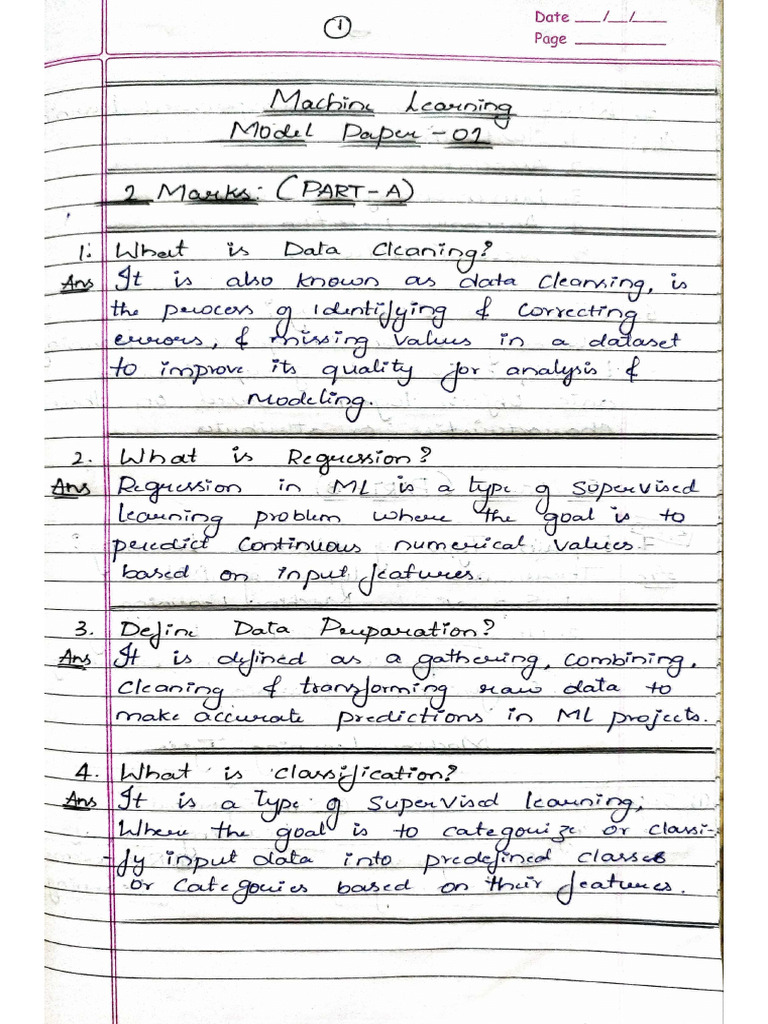 1
Date __/__/__
Page ______
Machine Learning
Model Paper - 01
2 Marks: (PART-A)
1. What is Data Cleaning?
Ans It is also known as data cleansing, is
the process of identifying & correcting
errors, & missing values in a dataset
to improve its quality for analysis &
modeling.
2. What is Regression?
Ans Regression in ML is a type of supervised
learning problem where the goal is to
predict continuous numerical values
based on input features.
3. Define Data Preparation?
Ans It is defined as a gathering, combining,
cleaning & transforming raw data to
make accurate predictions in ML projects.
4. What is classification?
Ans It is a type of supervised learning,
where the goal is to categorize or classi-
-fy input data into predefined classes
or categories based on their features.